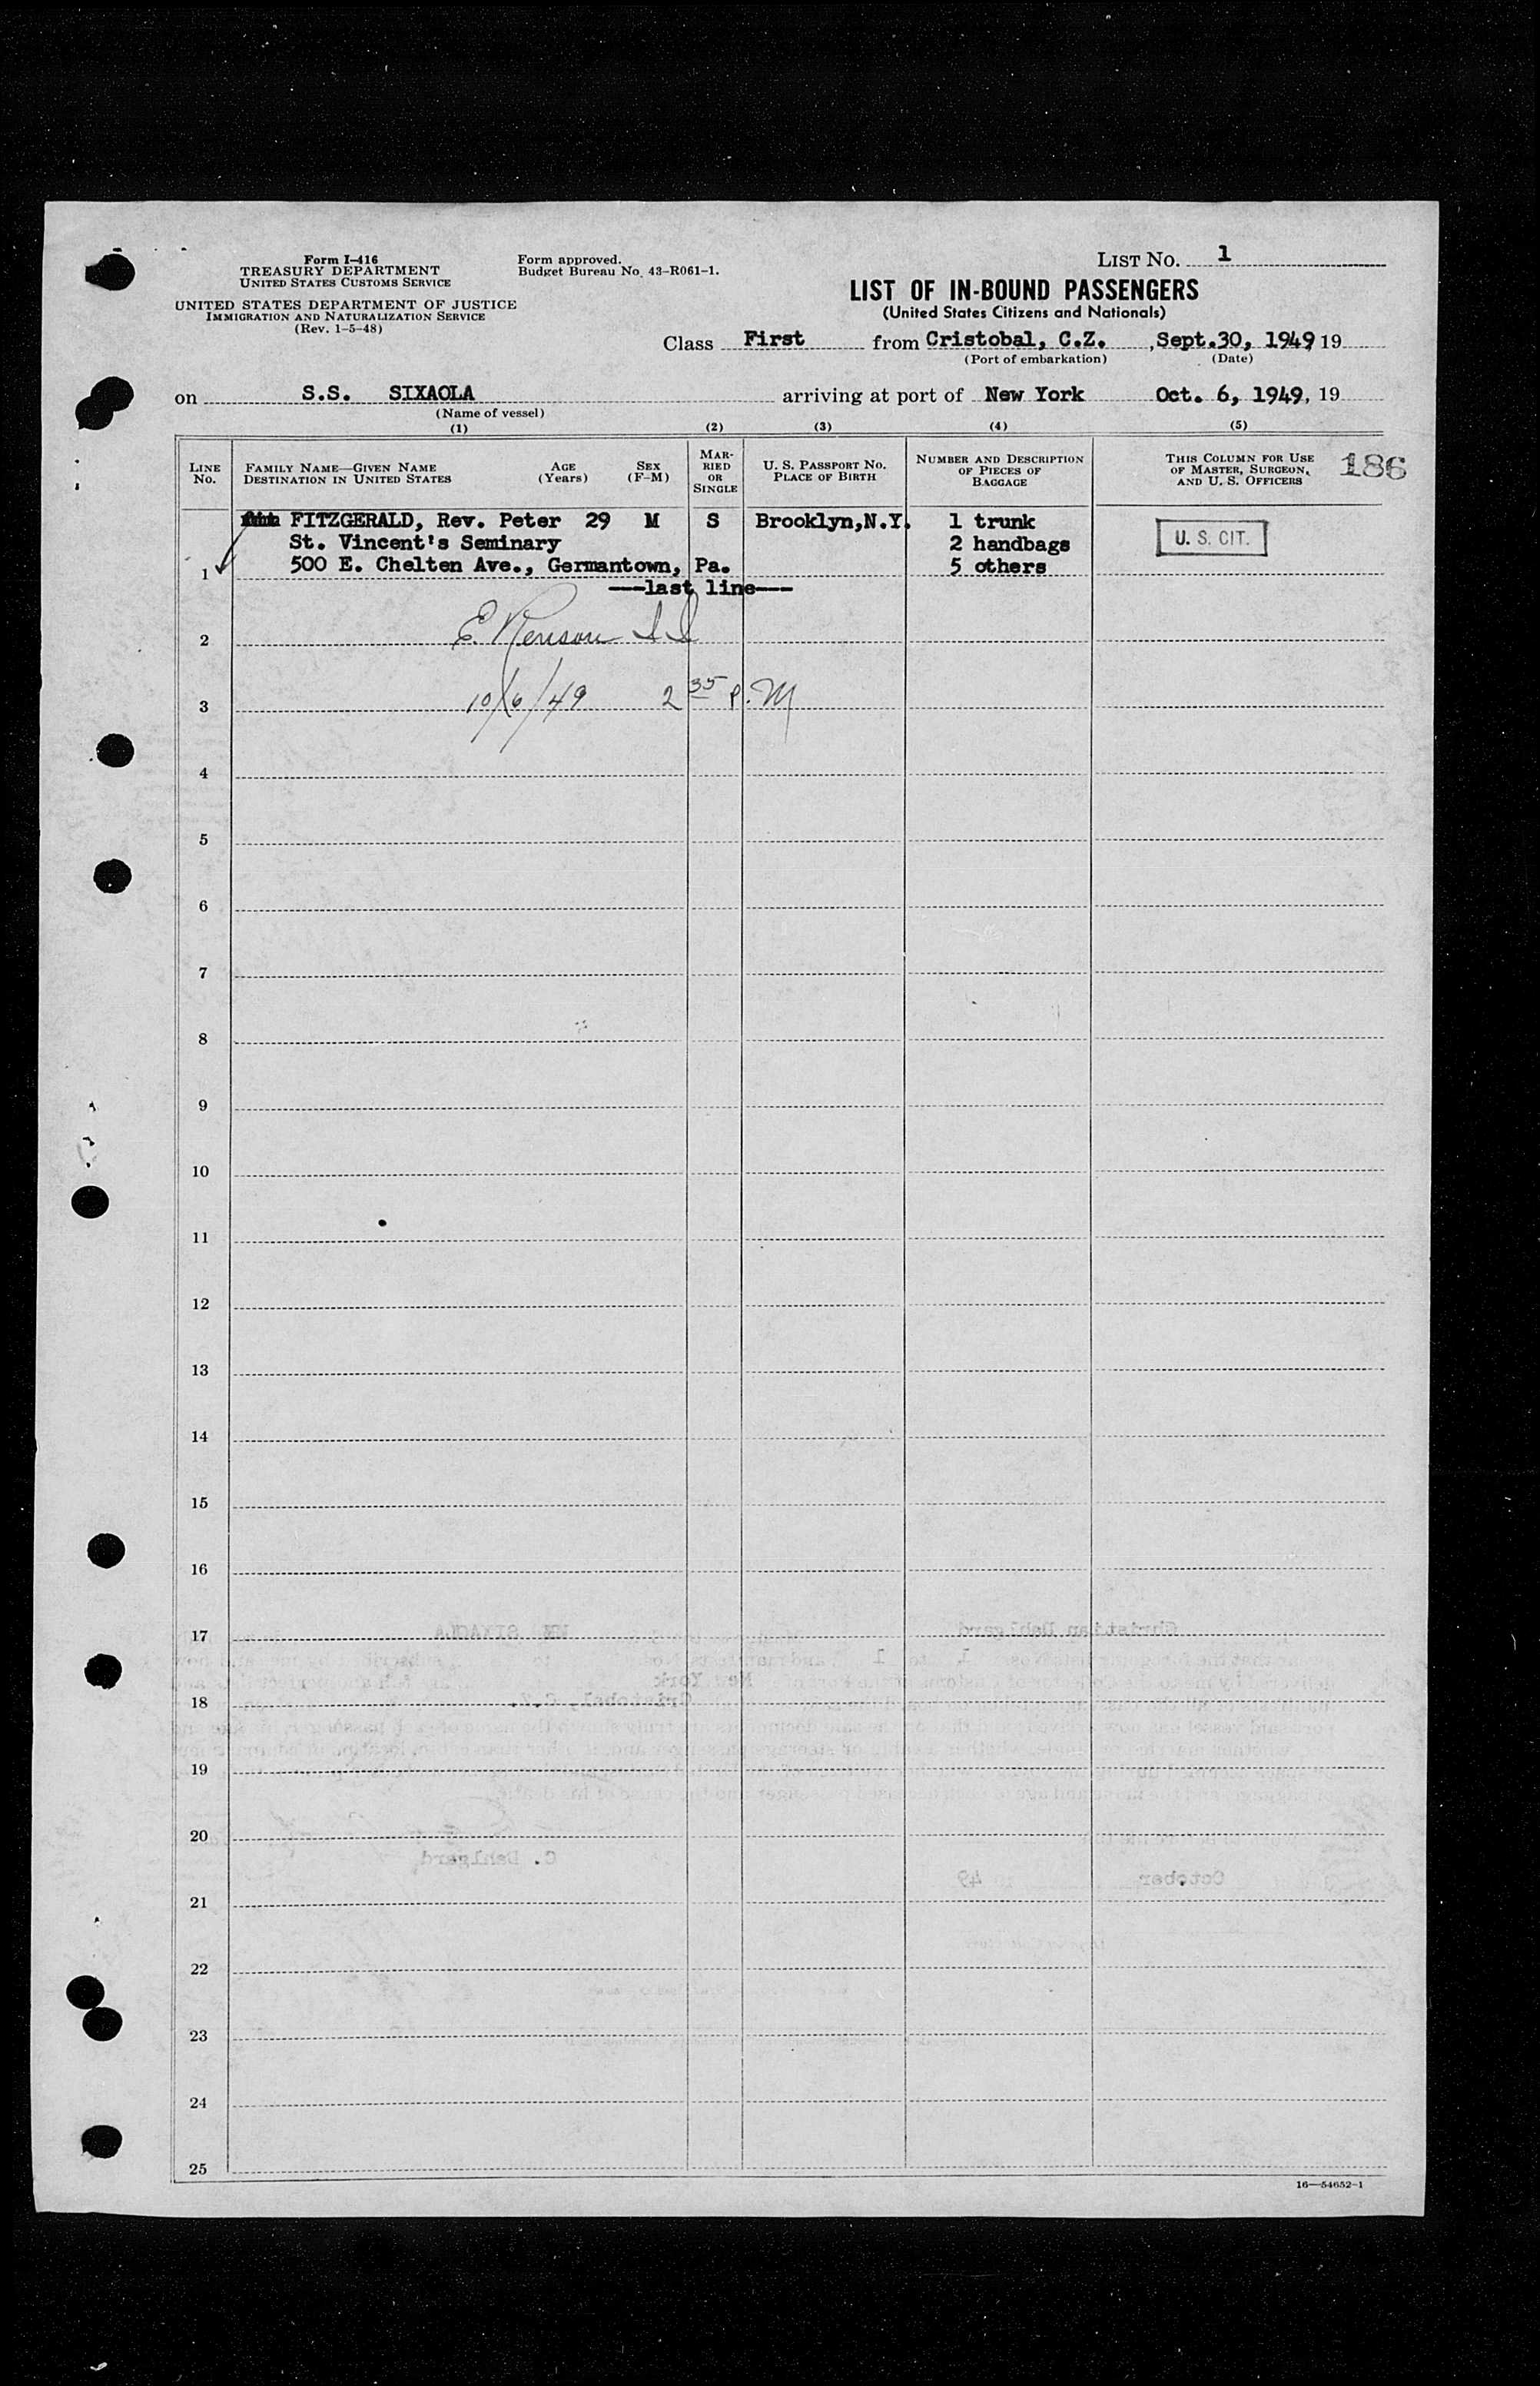 Form I-416
TREASURY DEPARTMENT
UNITED STATES CUSTOMS SERVICE
UNITED STATES DEPARTMENT OF JUSTICE
IMMIGRATION AND NATURALIZATION SERVICE
(Rev. 1-5-48)
Form approved.
Budget Bureau No. 43-R061-1.
LIST NO. 1
LIST OF IN-BOUND PASSENGERS
(United States Citizens and Nationals)
Class First from Cristobal, C.Z. , Sept.30, 1949, 19
(Port of embarkation) (Date)
on S.S. SIXAOLA arriving at port of New York Oct. 6, 1949, 19
(Name of vessel)
(1) (2) (3) (4) (5)
LINE NO.
FAMILY NAME—GIVEN NAME
DESTINATION IN UNITED STATES
AGE (Years)
SEX (F-M)
MARRIED OR SINGLE
U. S. PASSPORT NO.
PLACE OF BIRTH
NUMBER AND DESCRIPTION
OF PIECES OF
BAGGAGE
THIS COLUMN FOR USE
OF MASTER, SURGEON,
AND U. S. OFFICERS
186
FITZGERALD, Rev. Peter 29 M S Brooklyn,N.Y. 1 trunk
St. Vincent's Seminary 2 handbags U. S. CIT.
1 500 E. Chelten Ave., Germantown, Pa. 5 others
---last line---
2 E.
3 10/6/49 2 35 P.M
4
5
6
7
8
9
10
11
12
13
14
15
16
17
18
19
20
21
22
23
24
25
16—54652-1